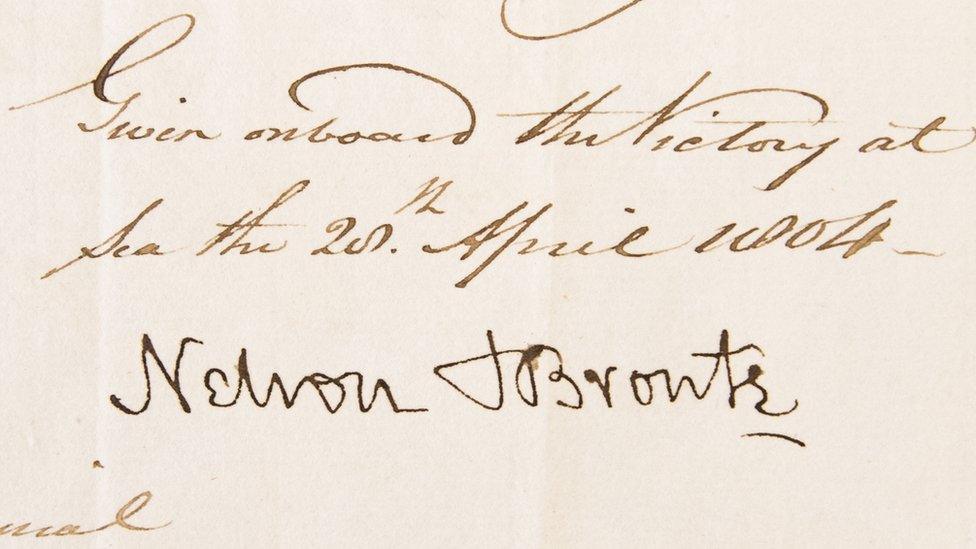 Given onboard the Victory at
Sea the 28.th April 1804 –
Nelson & Bronte